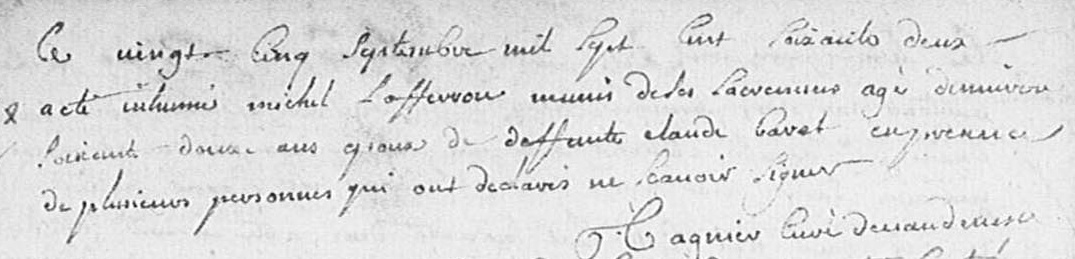 Le vingt cinq septembre mil sept cent soixante deux
a eté inhumé michel Lafferrou munis de ses sacremens agé denviron
soixante douze ans epoux de deffunte claude Gavet en presence
de plusieurs personnes qui ont declarés ne scavoir signer
Tagnier Curé